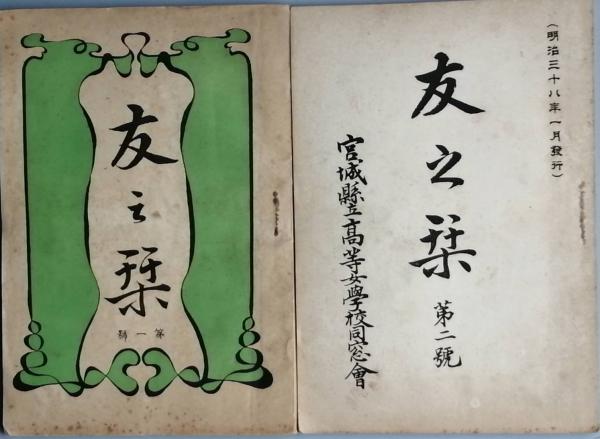 友之栞
第一號
(明治三十八年一月發行)
友之栞
第二號
宮城縣立高等女學校同窓會